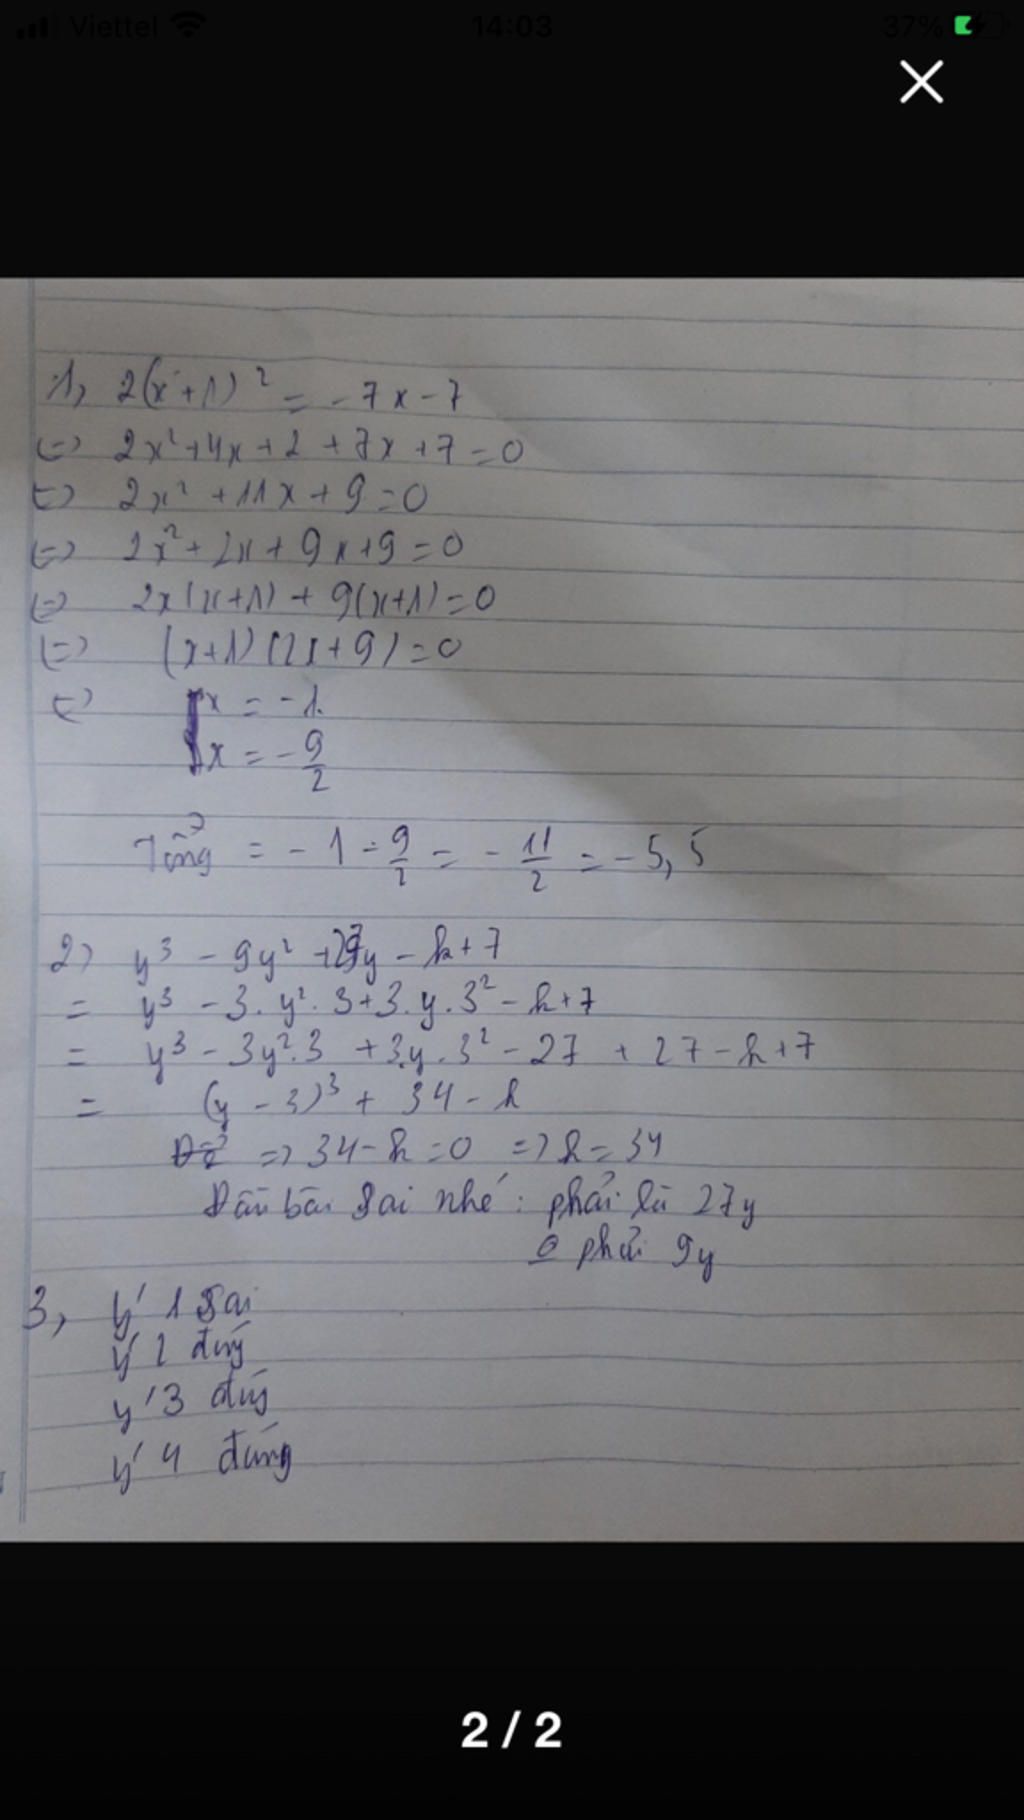 Viettel 14:03 37%
1, 2(x+1)² = -7x-7
(=) 2x²+4x+2+7x+7=0
(=) 2x²+11x+9=0
(=) 2x²+2x+9x+9=0
(=) 2x(x+1)+9(x+1)=0
(=) (x+1)(2x+9)=0
(=) x = -1
x = -9/2
Tổng = -1 - 9/2 = -11/2 = -5,5
2) y³ - 9y² + 27y - k+7
= y³ - 3.y².3+3.y.3² - k+7
= y³ - 3y².3 +3.y.3² - 27 + 27 - k+7
= (y - 3)³ + 34 - k
=> 34-k=0 => k=34
Đầu bài sai nhé: phải là 27y
phải 9y
3, ý 1 sai
ý 2 đúng
ý 3 đúng
ý 4 đúng
2 / 2